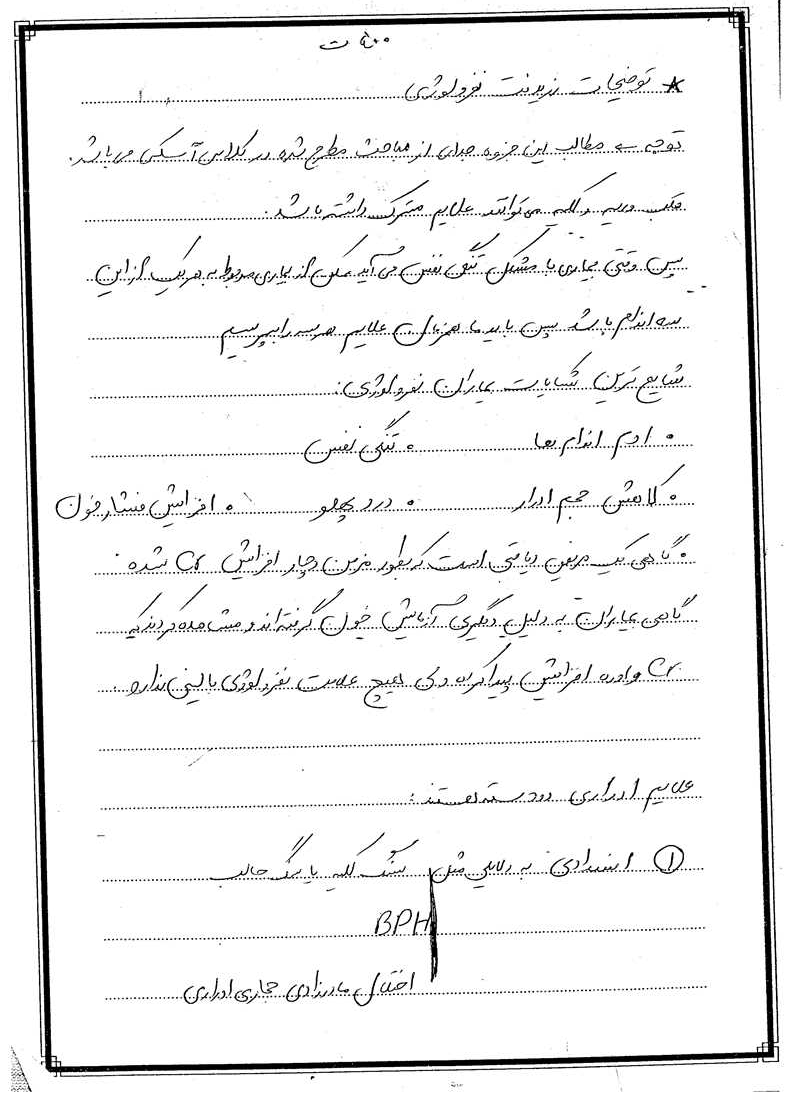 * توضیحات رزیدنت نفرولوژی
توجه ← مطالب این جزوه جدای از مباحث مطرح شده در کلاس آسکی می باشد.
قلب و ریه و کلیه می توانند علایم مشترک داشته باشد.
پس وقتی بیماری با مشکل تنگی نفس می آید ممکن از بیماری مربوط به هر یک از این
سه اندام باشد پس باید ما همزمان علایم هر سه را بپرسیم
شایع ترین شکایات بیماران نفرولوژی:
• ادم اندام ها • تنگی نفس
• کاهش حجم ادرار • درد پهلو • افزایش فشار خون
• گاهی یک مریض دیابتی است که بطور مزمن دچار افزایش Cr شده
گاهی بیماران به دلیل دیگری آزمایش خون گرفته اند و مشاهده کردند که
Cr و اوره افزایش پیدا کرده ولی هیچ علامت نفرولوژی بالینی ندارد.
علایم ادراری دو دسته هستند:
① انسدادی به دلایلی مثل سنگ کلیه یا سنگ حالب
BPH
اختلال مادرزادی مجاری ادراری